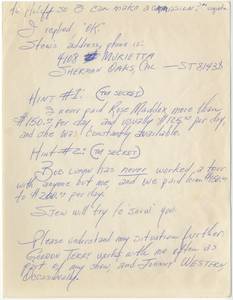 to Holiff so I can make a commission?"
I replied "OK."
Stew's address, phone is:
4108 Murietta
Sherman Oaks, Cal. - ST81938
Hint #1: (Top Secret)
I never paid Rose Maddox more than
$150.00 per day, and usually $125.00 per day,
and she was constantly available.
Hint #2: (Top Secret)
Bob Luman has never worked a tour
with anyone but me, and we paid him
to $200.00 per day.
Stew will try to "snow" you.
Please understand my situation further.
Gordon Terry works with me often as
part of my show, and Johnny Western
Occasionally.